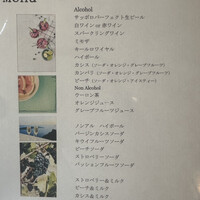 Menu
Alcohol
サッポロパーフェクト生ビール
白ワイン or 赤ワイン
スパークリングワイン
ミモザ
キールロワイヤル
ハイボール
カシス（ソーダ・オレンジ・グレープフルーツ）
カンパリ（ソーダ・オレンジ・グレープフルーツ）
ピーチ（ソーダ・オレンジ・アイスティー）
Non Alcohol
ウーロン茶
オレンジジュース
グレープフルーツジュース
ノンアル ハイボール
バージンカシスソーダ
キウイフルーツソーダ
ピーチソーダ
ストロベリーソーダ
パッションフルーツソーダ
ストロベリー＆ミルク
ピーチ＆ミルク
カシス＆ミルク